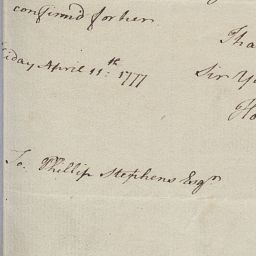 confirm'd for her.
Tha
iday April 11:th 1777
Sir Y
Ho
To. Phillip Stephens Esqr